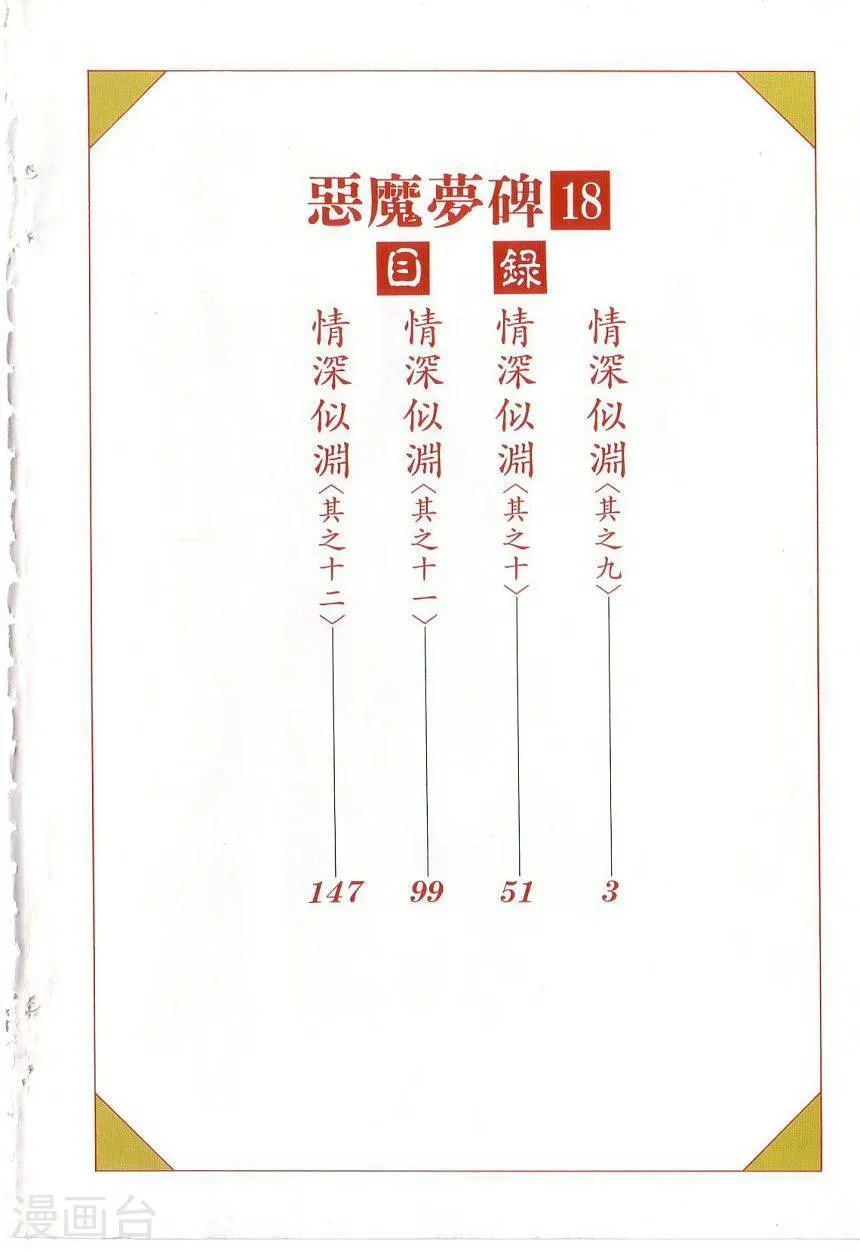 惡魔夢碑 18
目錄
情深似淵〈其之九〉 3
情深似淵〈其之十〉 51
情深似淵〈其之十一〉 99
情深似淵〈其之十二〉 147
漫画台